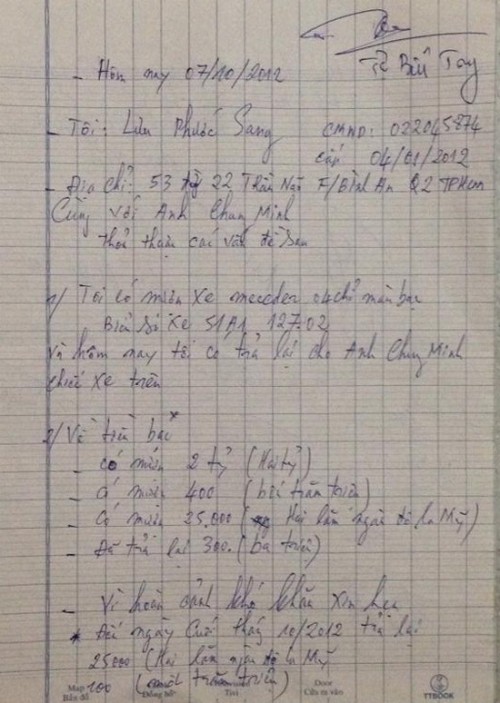 Từ Bửu Tay
- Hôm nay 07/10/2012
- Tôi: Lưu Phước Sang CMND: 022045874
cấp 04/01/2012
- Địa chỉ: 53 22 Trần Não F/Bình An Q2 TPHCM
Cùng với Anh Chung Minh
Thỏa thuận các vấn đề sau
1/ Tôi có mượn xe mecedes 04 chỗ màu bạc
Biển số xe 51A1 127.02
Và hôm nay tôi có trả lại cho Anh Chung Minh
chiếc xe trên
2/ Về tiền bạc
- Có mượn 2 tỷ (Hai tỷ)
- Có mượn 400 (bốn trăm triệu)
- Có mượn 25.000 (Hai lăm ngàn đô la Mỹ)
- Đã trả lại 300. (ba triệu)
- Vì hoàn cảnh khó khăn xin hẹn
* Đến ngày Cuối tháng 10/2012 trả lại
25000 (Hai lăm ngàn đô la Mỹ
100 (một trăm triệu)
Map Door
Bản đồ Đồng hồ Tivi Cửa ra vào
TTBOOK